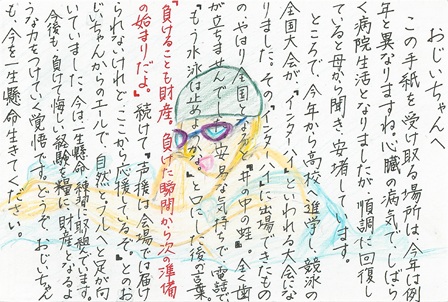 おじいちゃんへ
この手紙を受け取る場所は、今年は例
年と異なりますね。心臓の病気で、しばら
く病院生活となりましたが、順調に回復し
ていると母から聞き、安堵しています。
ところで、今年から高校へ進学し、競泳の
全国大会が、『インターハイ』といわれる大会にな
りました。その『インターハイ』に出場できたもの
のやはり、全国
が立ちませんでした。
『もう水泳は止め
『負けることも財産。負けた瞬間から次の準備
の始まりだよ。』続けて『声援は会場では届け
られないけれど、ここから応援しているぞ。』とのお
じいちゃんからのエールで、自然とプールへと足が向
いていました。今は、一生懸命練習に取組んでいます。
今後も、負けて悔しい経験を糧に、財産となるよ
うな力をつけていく覚悟です。どうぞおじいちゃん
も、今を一生懸命生きてください。